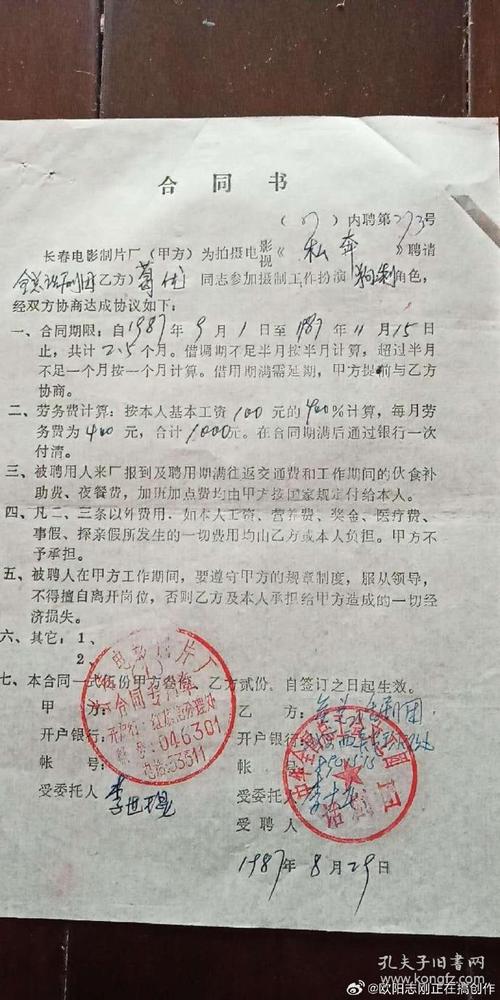 合同书
(87)内聘第273号
长春电影制片厂(甲方)为拍摄电影视《私奔》聘请
全总话剧团乙方)葛优同志参加摄制工作扮演 角色,
经双方协商达成协议如下:
一、合同期限:自1987年9月1日至1987年11月15日
止,共计2.5个月。借调期不足半月按半月计算,超过半月
不足一个月按一个月计算。借用期满需延期,甲方提前与乙方
协商。
二、劳务费计算:按本人基本工资100元的400%计算,每月劳
务费为400元,合计1000元。在合同期满后通过银行一次
付清。
三、被聘用人来厂报到及聘用期满往返交通费和工作期间的伙食补
助费、夜餐费,加班加点费均由甲方按国家规定付给本人。
四、凡二、三条以外费用,如本人工资、营养费、奖金、医疗费、
事假、探亲假所发生的一切费用均由乙方或本人负担。甲方不
予承担。
五、被聘人在甲方工作期间,要遵守甲方的规章制度,服从领导,
不得擅自离开岗位,否则乙方及本人承担给甲方造成的一切经
济损失。
六、其它:1、
2、
七、本合同一式伍份甲方叁份,乙方贰份。自签订之日起生效。
甲方:
开户银行:
帐号:
受委托人 李世琨
电影制片厂
合同专用章
046301
电话53311
乙方:全总话剧团
开户银行:
帐号:
受委托人
受聘人
话剧团
1987年8月29日
孔夫子旧书网
@欧阳志刚正在搞创作
www.kongfz.com